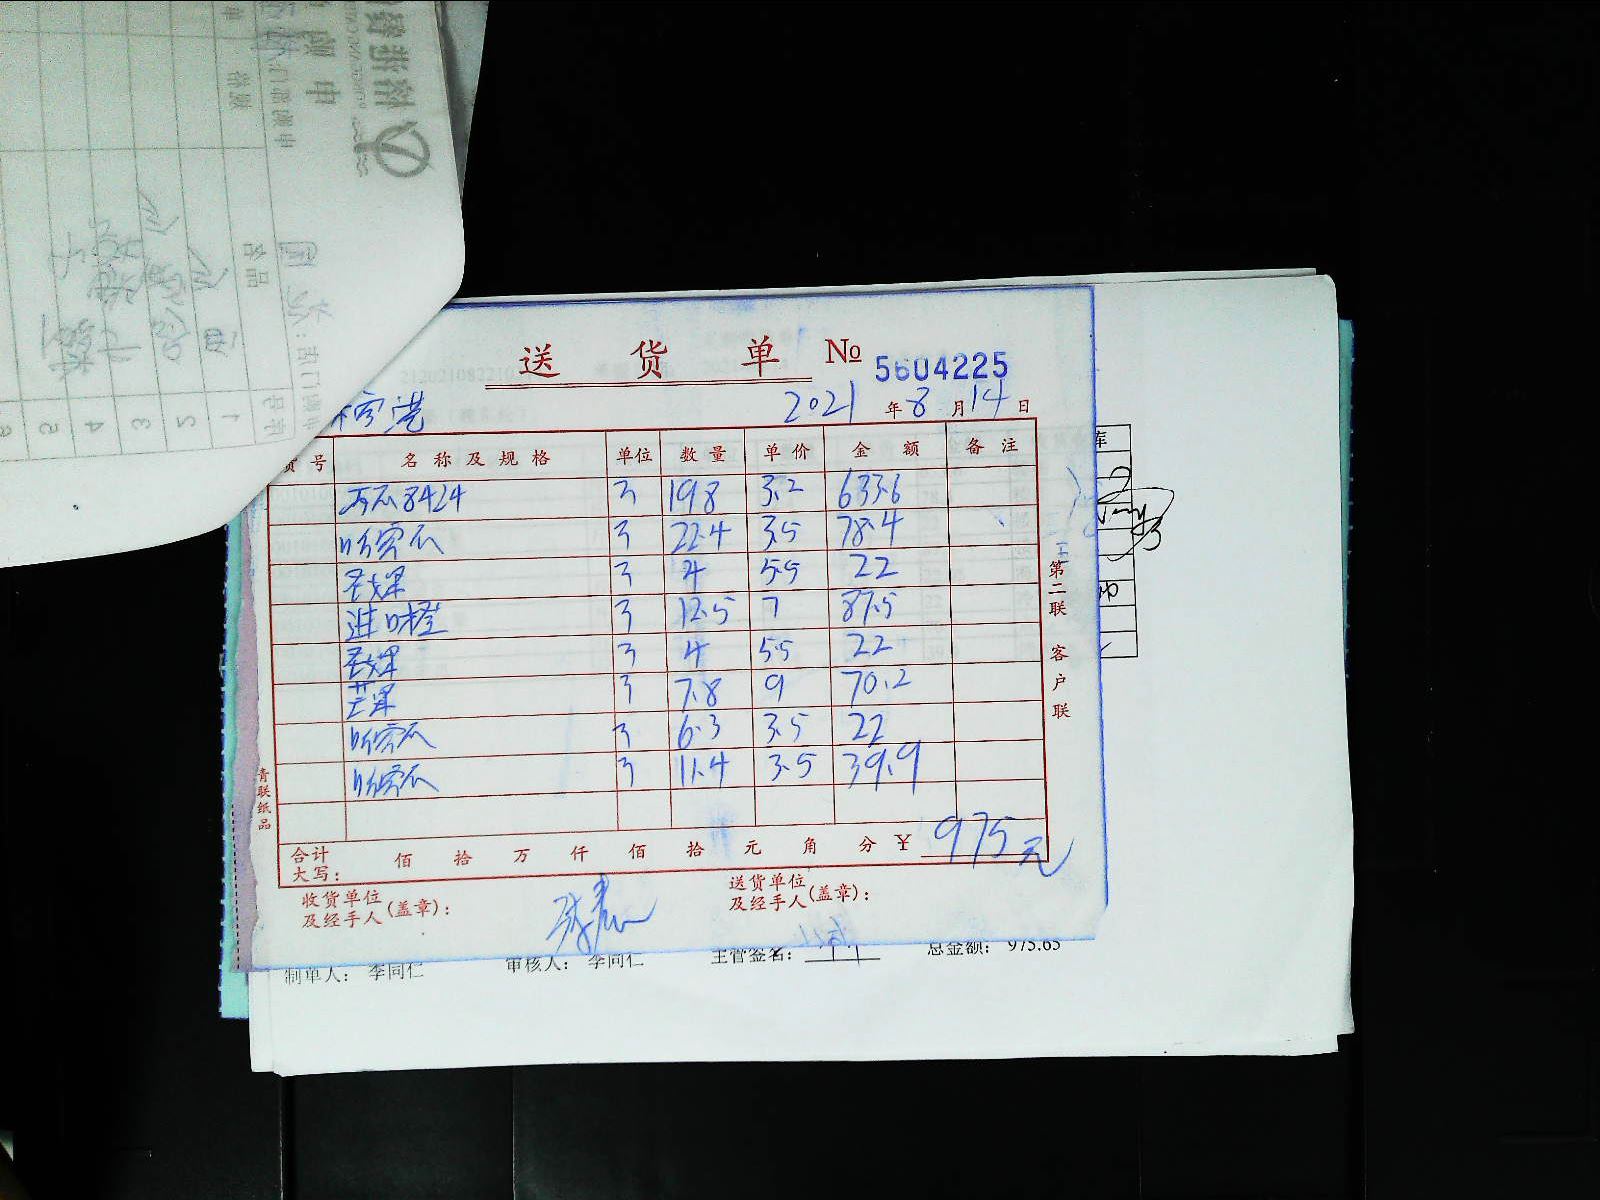 送 货 单 № 5604225
2021 年 8 月 14 日
货 号 名 称 及 规 格 单位 数 量 单 价 金 额 备 注
8424 198 3.2 633.6
哈密瓜 22.4 3.5 78.4
4 5.5 22
进口橙 12.5 7 87.5
4 5.5 22
芒果 7.8 9 70.2
哈密瓜 6.3 3.5 22
哈密瓜 11.4 3.5 39.9
合计
大写： 佰 拾 万 仟 佰 拾 元 角 分 ¥ 975元
收货单位
及经手人(盖章)：
送货单位
及经手人(盖章)：
第二联 客户联
青联纸品
制单人： 李同仁 审核人： 李同仁 主管签名： 总金额： 975.65